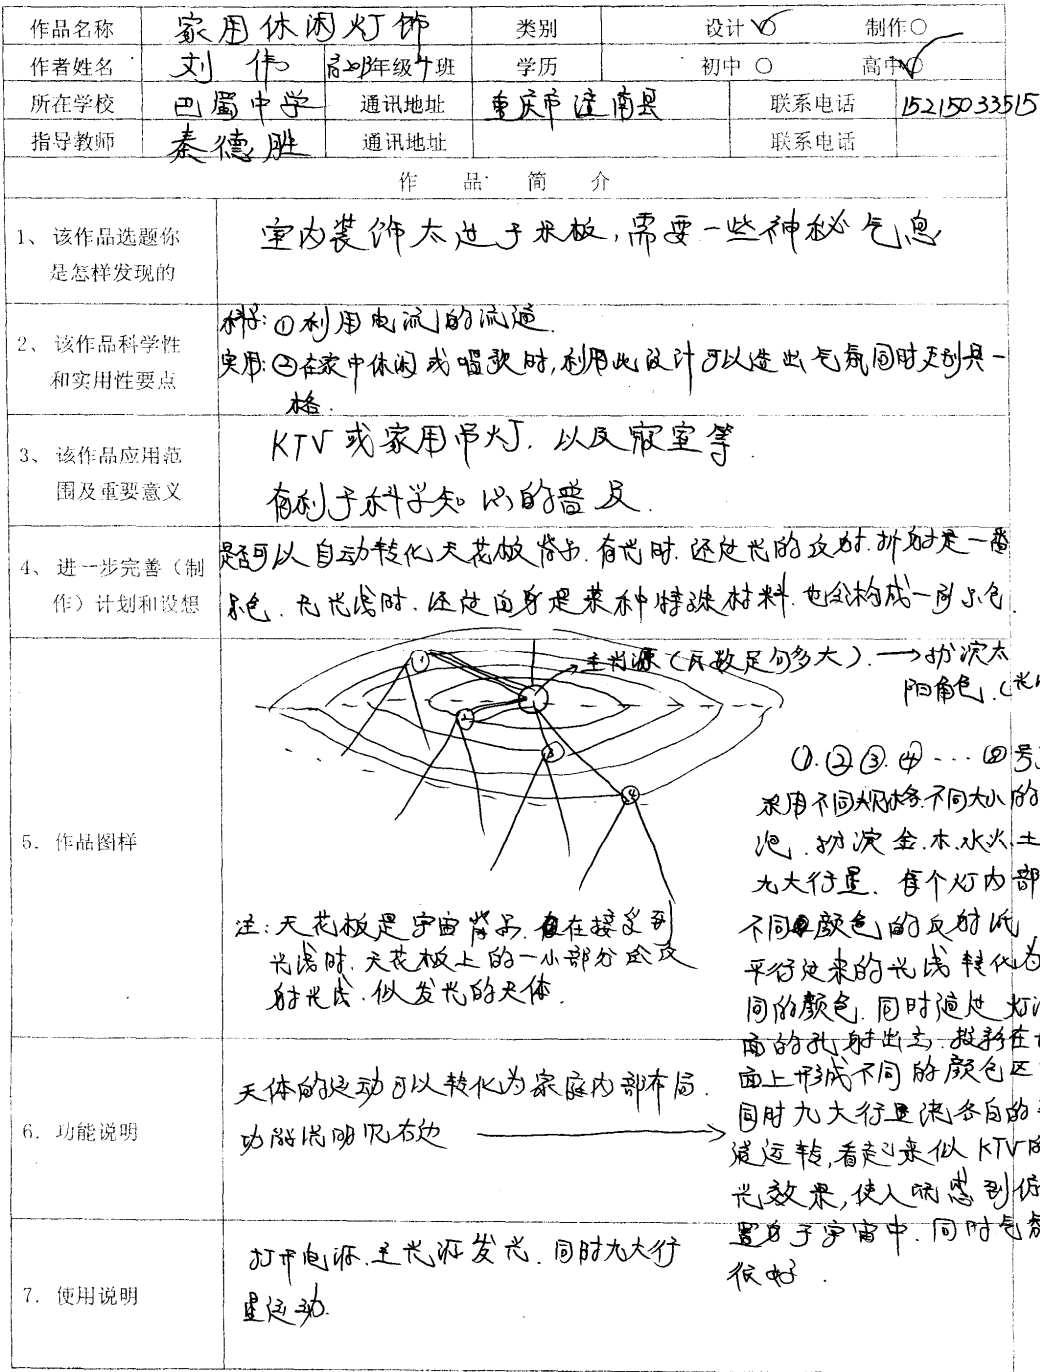 作品名称 家用休闲灯饰 类别 设计 制作
作者姓名 刘伟 年级 班 学历 初中 高中
所在学校 巴蜀中学 通讯地址 重庆市潼南县 联系电话 15215033515
指导教师 秦德胜 通讯地址 联系电话
作 品 简 介
1、该作品选题你
是怎样发现的
室内装饰太过于呆板,需要一些神秘气息
2、该作品科学性
和实用性要点
科学:①利用电流的流通.
实用:②在家中休闲或唱歌时,利用此设计可以造出气氛同时又别具一
格.
3、该作品应用范
围及重要意义
KTV或家用吊灯.以及寝室等.
有利于科学知识的普及.
4、进一步完善(制
作)计划和设想
是否可以自动转化天花板背景.有光时.通过光的反射.折射是一番
景色.无光线时.通过自身是某种特殊材料.也会构成一副景色.
5.作品图样
主光源(瓦数足够多大).→扮演太
阳角色.(光
1
2
3
4
①.②.③.④...⑨号
采用不同规格.不同大小的
泡.扮演金.木.水.火.土
九大行星.每个灯内部
不同颜色的反射
平行过来的光线转化为
同的颜色.同时通过灯
面的孔射出去.投影在
面上形成不同的颜色区
同时九大行星 各自的
运转,看起来似KTV的
光效果,使人 感到
置身于宇宙中.同时气氛
很好.
注:天花板是宇宙背景.在接受到
光线时.天花板上的一小部分会反
射光线.似发光的天体.
6.功能说明
天体的运动可以转化为家庭内部布局.
功能说明见右边
7.使用说明
打开电源.主光源发光.同时九大行
星运动.